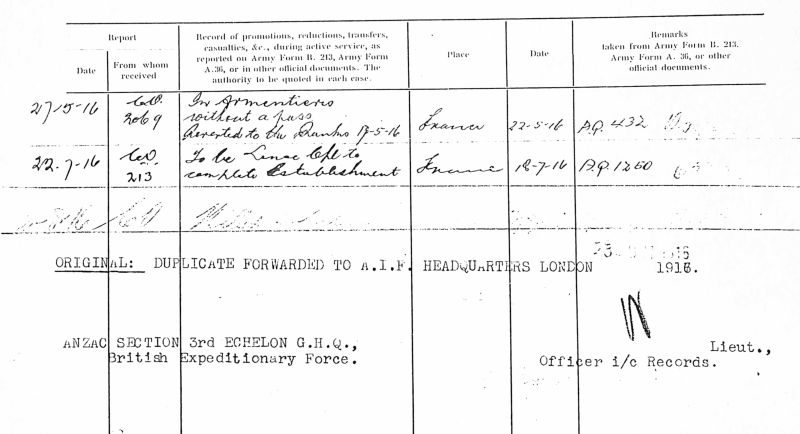 Report
Record of promotions, reductions, transfers,
casualties, &c., during active service, as
reported on Army Form B. 213, Army Form
A. 36, or in other official documents. The
authority to be quoted in each case.
Place
Date
Remarks
taken from Army Form B. 213,
Army Form A. 36, or other
official documents.
Date
From whom
received
27-5-16
C.O.
2069
In Armentieres
without a pass
Reverted to the Ranks 17-5-16
France
22-5-16
B.Q. 432
22.7-16
C.O.
213
To be Lance Cpl to
complete Establishment
France
18-7-16
B.Q. 1250
ORIGINAL: DUPLICATE FORWARDED TO A.I.F. HEADQUARTERS LONDON 1916.
ANZAC SECTION 3rd ECHELON G.H.Q.,
British Expeditionary Force.
Lieut.,
Officer i/c Records.